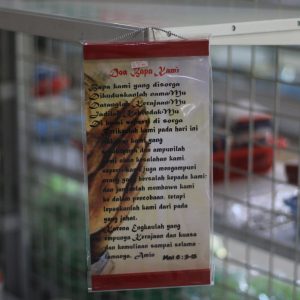 Doa Bapa Kami
Bapa kami yang disorga
Dikuduskanlah namaMu
Datanglah KerajaanMu
Jadilah KehendakMu
Di bumi seperti di sorga
Berikanlah kami pada hari ini
kami yang
dan ampunilah
kami akan kesalahan kami
seperti kami juga mengampuni
orang yang bersalah kepada kami
dan janganlah membawa kami
ke dalam pencobaan, tetapi
lepaskanlah kami dari pada
yang jahat.
Karena Engkaulah yang
empunya Kerajaan dan kuasa
dan kemuliaan sampai selama
lamanya. Amin Mat 6 : 9-13